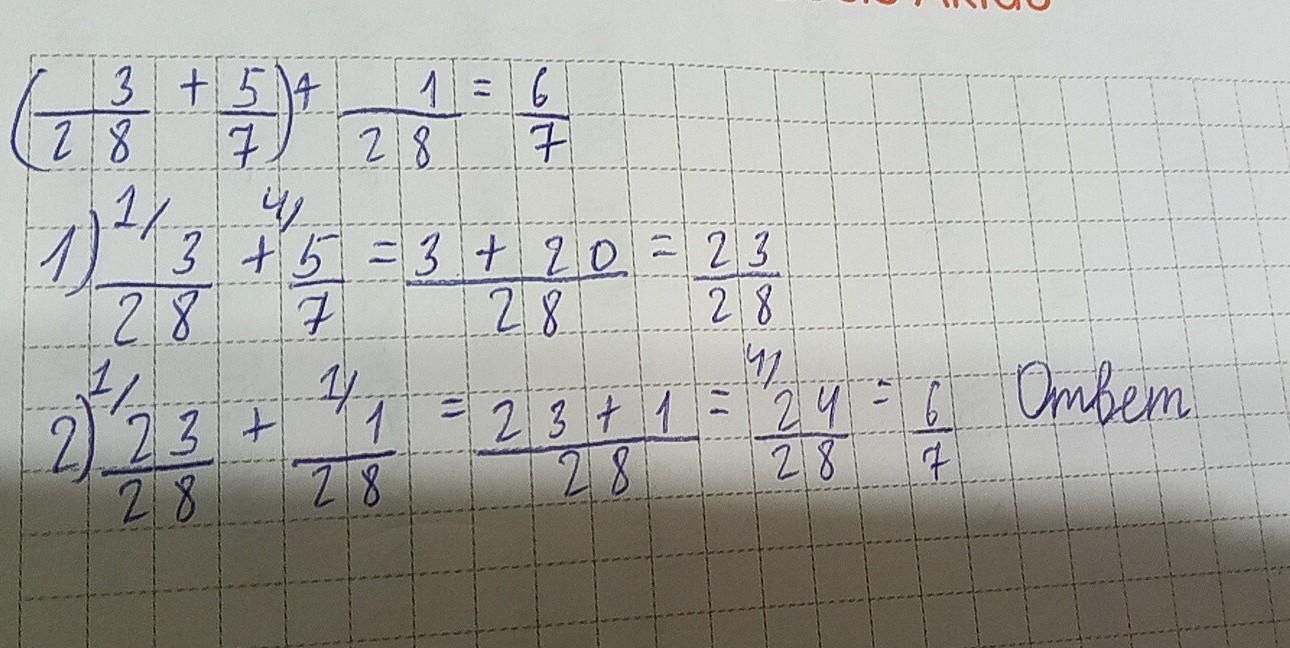 (3/28 + 5/7) + 1/28 = 6/7
1) 1/ 3/28 + 4/ 5/7 = 3 + 20/28 = 23/28
2) 1/ 23/28 + 1/ 1/28 = 23 + 1/28 = 4/ 24/28 = 6/7 Ответ